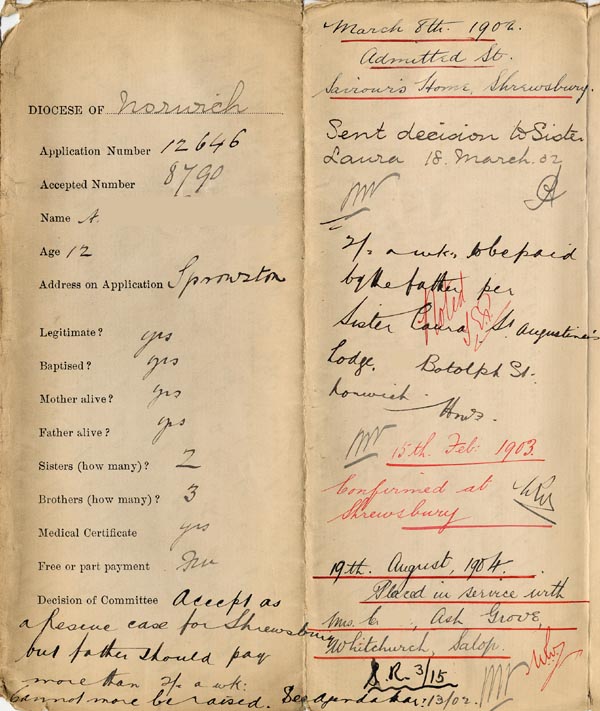 DIOCESE OF Norwich
Application Number 12646
Accepted Number 8790
Name A.
Age 12
Address on Application Sprowston
Legitimate? yes
Baptised? yes
Mother alive? yes
Father alive? yes
Sisters (how many)? 2
Brothers (how many)? 3
Medical Certificate yes
Free or part payment
Decision of Committee Accept as
a Rescue case for Shrewsbury
but father should pay
more than 2/- a wk:
cannot more be raised. See agenda
March 8th. 1902.
Admitted St.
Saviour's Home, Shrewsbury.
Sent decision to Sister
Laura 18. March. 02
2/- a wk. to be paid
by the father per
Sister Laura St Augustine's
Lodge. Botolph St.
Norwich
Noted
15th. Feb: 1903.
Confirmed at
Shrewsbury
19th. August, 1904.
Placed in service with
Mrs. C , Ash Grove,
Whitchurch, Salop.
S.R. 3/15
13/02.